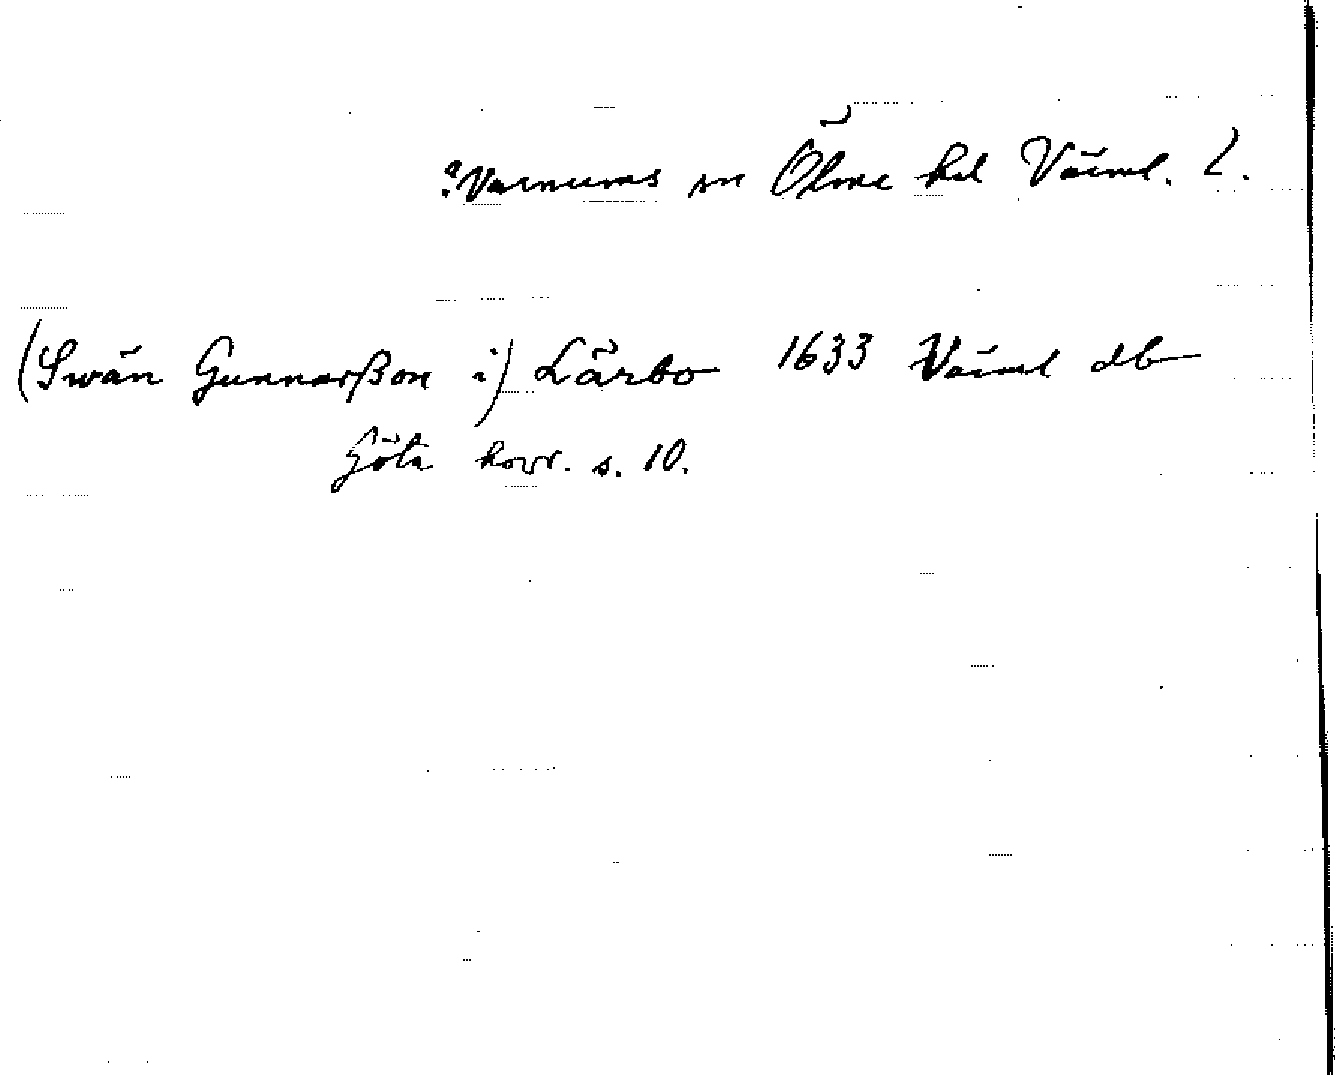 ?Varnums sn Ölme hd Värml. l.
(Swän Gunnarßon i) Lärbo 1633 Värml db
Göta hovr. s. 10.